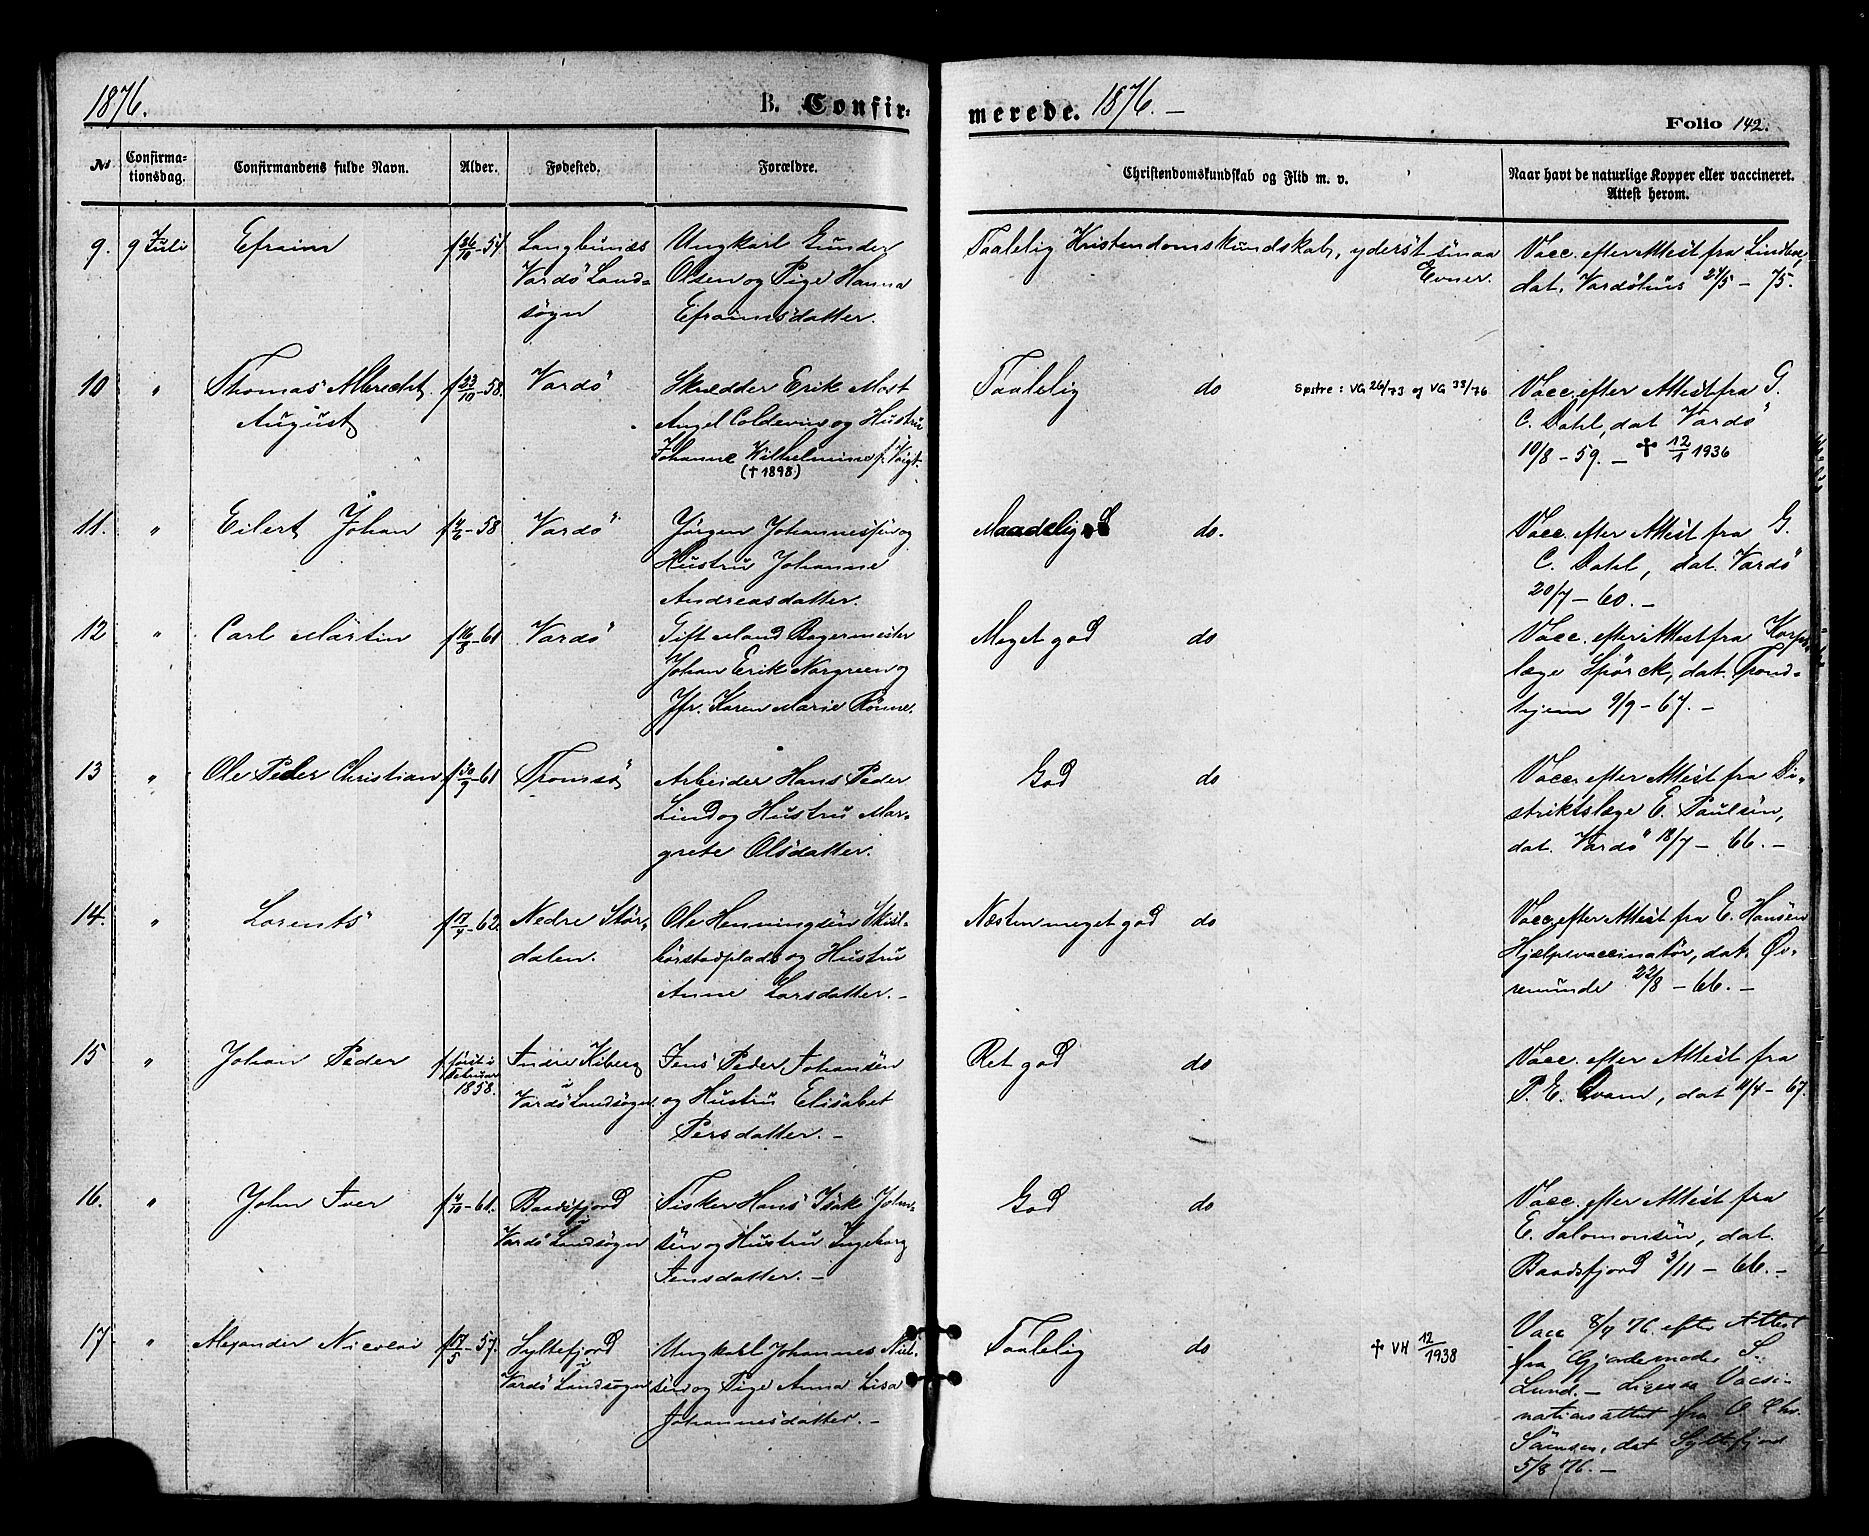 1876.
B. Confir-
merede. 1876. -
Folio 142.
No
Confirma-
tionsdag.
Confirmandens fulde Navn.
Alder.
Fødested.
Forældre.
Christendomskundskab og Flid m. v.
Naar havt de naturlige Kopper eller vaccineret.
Attest herom.
9. 9 Juli Efraim f 26/10-57 Langbunæs Ungkarl Gunder
Vardö Land- Olsen og Pige Hanna
sogn Efraimsdatter.
Taalelig Kristendomskundskab, yderst smaa
Evner.
Vacc. efter Attest fra
dat. Vardöhus 24/5 - 75.
10 " Thomas Albrecht f 23/10-58. Vardö Skrædder Erik Must
August Angel Coldevin og Hustru
Johanne Wilhelmine f. Voigt.
(† 1898)
Taalelig do Søstre: VG 26/73 og VG 38/76
Vacc. efter Attest fra G.
C. Dahl, dat Vardö
10/8 - 59. - † 12/1 1936
11. " Eilert Johan f 4/6-58 Vardö Jörgen Johannessen og
Hustru Johanne
Andreasdatter.
Maadelig do.
Vacc. efter Attest fra G.
C. Dahl, dat. Vardö
20/7 - 60. -
12 " Carl Martin f 16/8-61 Vardö Gift Mand Bagermester
Johan Erik Norgreen og
Jfr. Karen Marie Rönne.
Meget god do
Vacc. efter Attest fra Korps-
læge Spörck, dat. Trond-
hjem 9/9 - 67. -
13 " Ole Peder Christian f 30/9-61 Tromsö Arbeider Hans Peder
Lind og Hustru Mar-
grete Olsdatter.
God do
Vacc. efter Attest fra Di-
striktslæge E. Paulsen,
dat. Vardö 18/7 - 66. -
14. " Lorents f 17/4-62. Nedre Stör- Ole Henningsen
dalen. og Hustru
Anne Larsdatter. -
Næsten meget god do
Vacc. efter Attest fra E. Hansen
Hjelpevaccinatör, dat.
22/8 - 66. -
15 " Johan Peder f först i Indre Kiberg Jens Peder Johansen
Februar
1858. Vardö Landsogn. og Hustru Elisabet
Persdatter. -
Ret god do
Vacc. efter Attest fra
P. E. Qvam, dat 11/4 - 67.
16. " John Iver f 4/10-61. Baadsfjord Fisker Hans Isak John-
Vardö Landsogn sen og Hustru Ingeborg
Jensdatter. -
God do
Vacc. efter Attest fra
E. Salomonsen, dat.
Baadsfjord 3/11 - 66. -
17 " Alexander Nicolai f 17/5-57. Syltefjord Ungkarl Johannes Niel-
Vardö Landsogn sen og Pige Anna Lisa
Johannesdatter. -
Taalelig do † VH 12/1938
Vacc 8/7 76 efter Attest
fra Gjordemoder S.
Lund. - Ligesaa Vacsi-
nationsattest fra O Chr.
Sörensen, dat Syltefjord
5/8 76. -